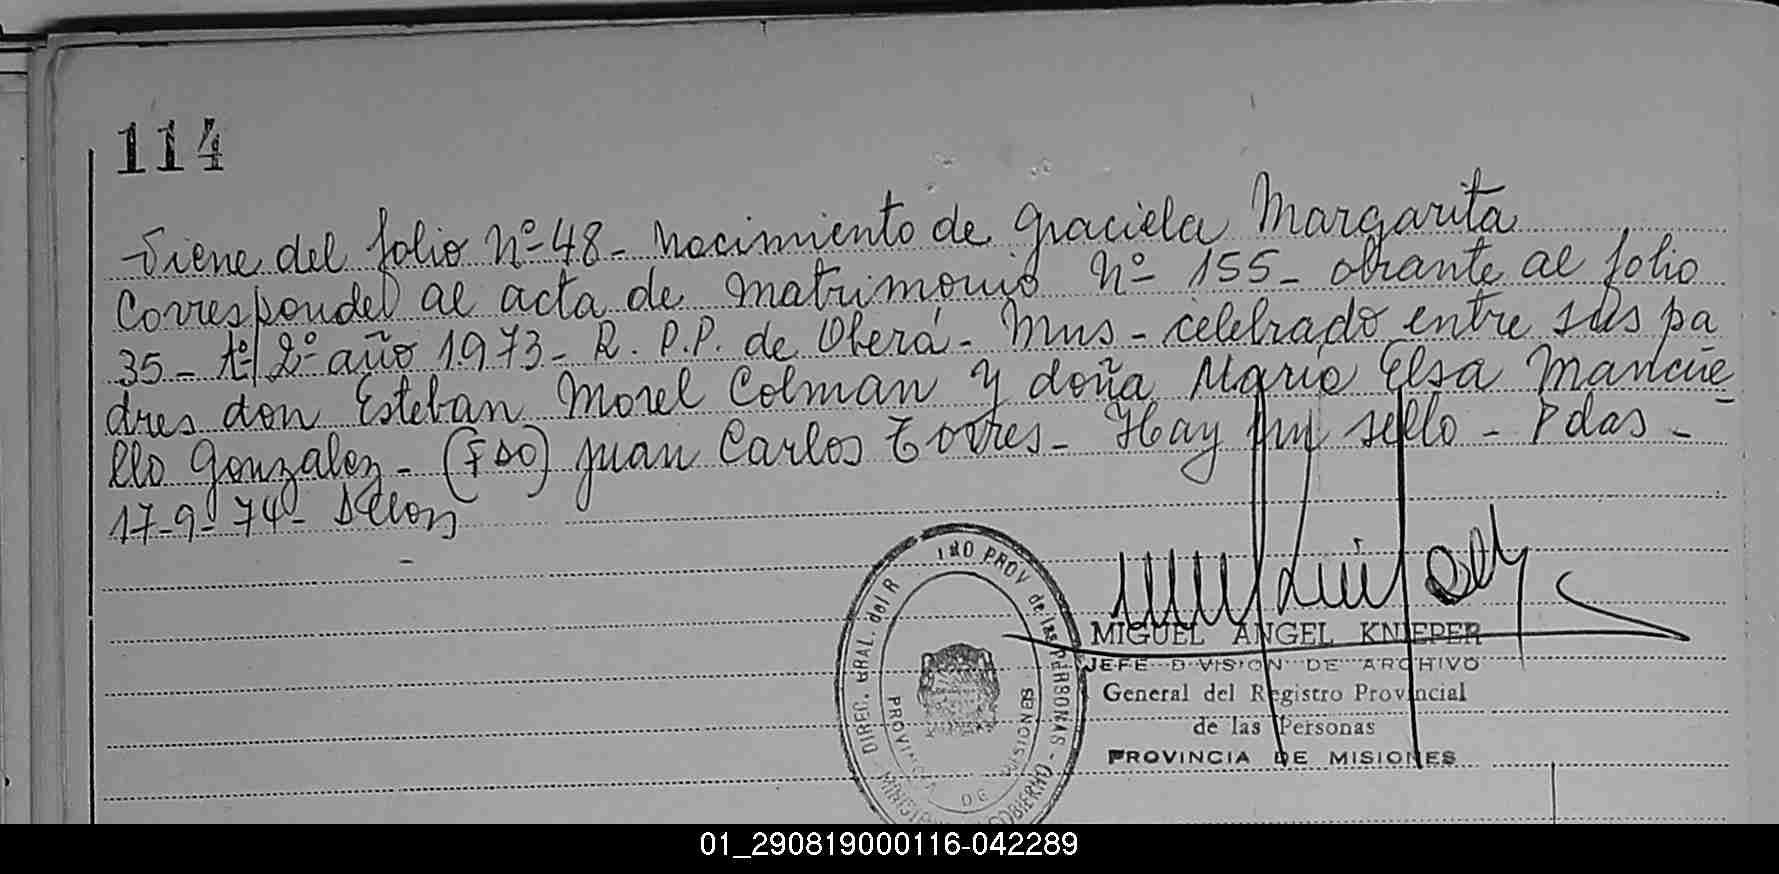 114
Viene del folio Nº 48- Nacimiento de Graciela Margarita
Corresponde al acta de matrimonio Nº 155- obrante al folio
35- tº 2º año 1973- R. P.P. de Oberá- Mns- celebrado entre sus pa
dres don Esteban Morel Colman y doña Mario Elsa Mancue
llo Gonzalez- (FDO) Juan Carlos Torres- Hay un sello- Pdas-
17-9-74-
DIREC. GRAL. del R PROV de las PERSONAS - GOBIERNO
PROVINCIA DE MISIONES
MIGUEL ANGEL KNIEPER
JEFE DIVISION DE ARCHIVO
General del Registro Provincial
de las Personas
PROVINCIA DE MISIONES
01_290819000116-042289